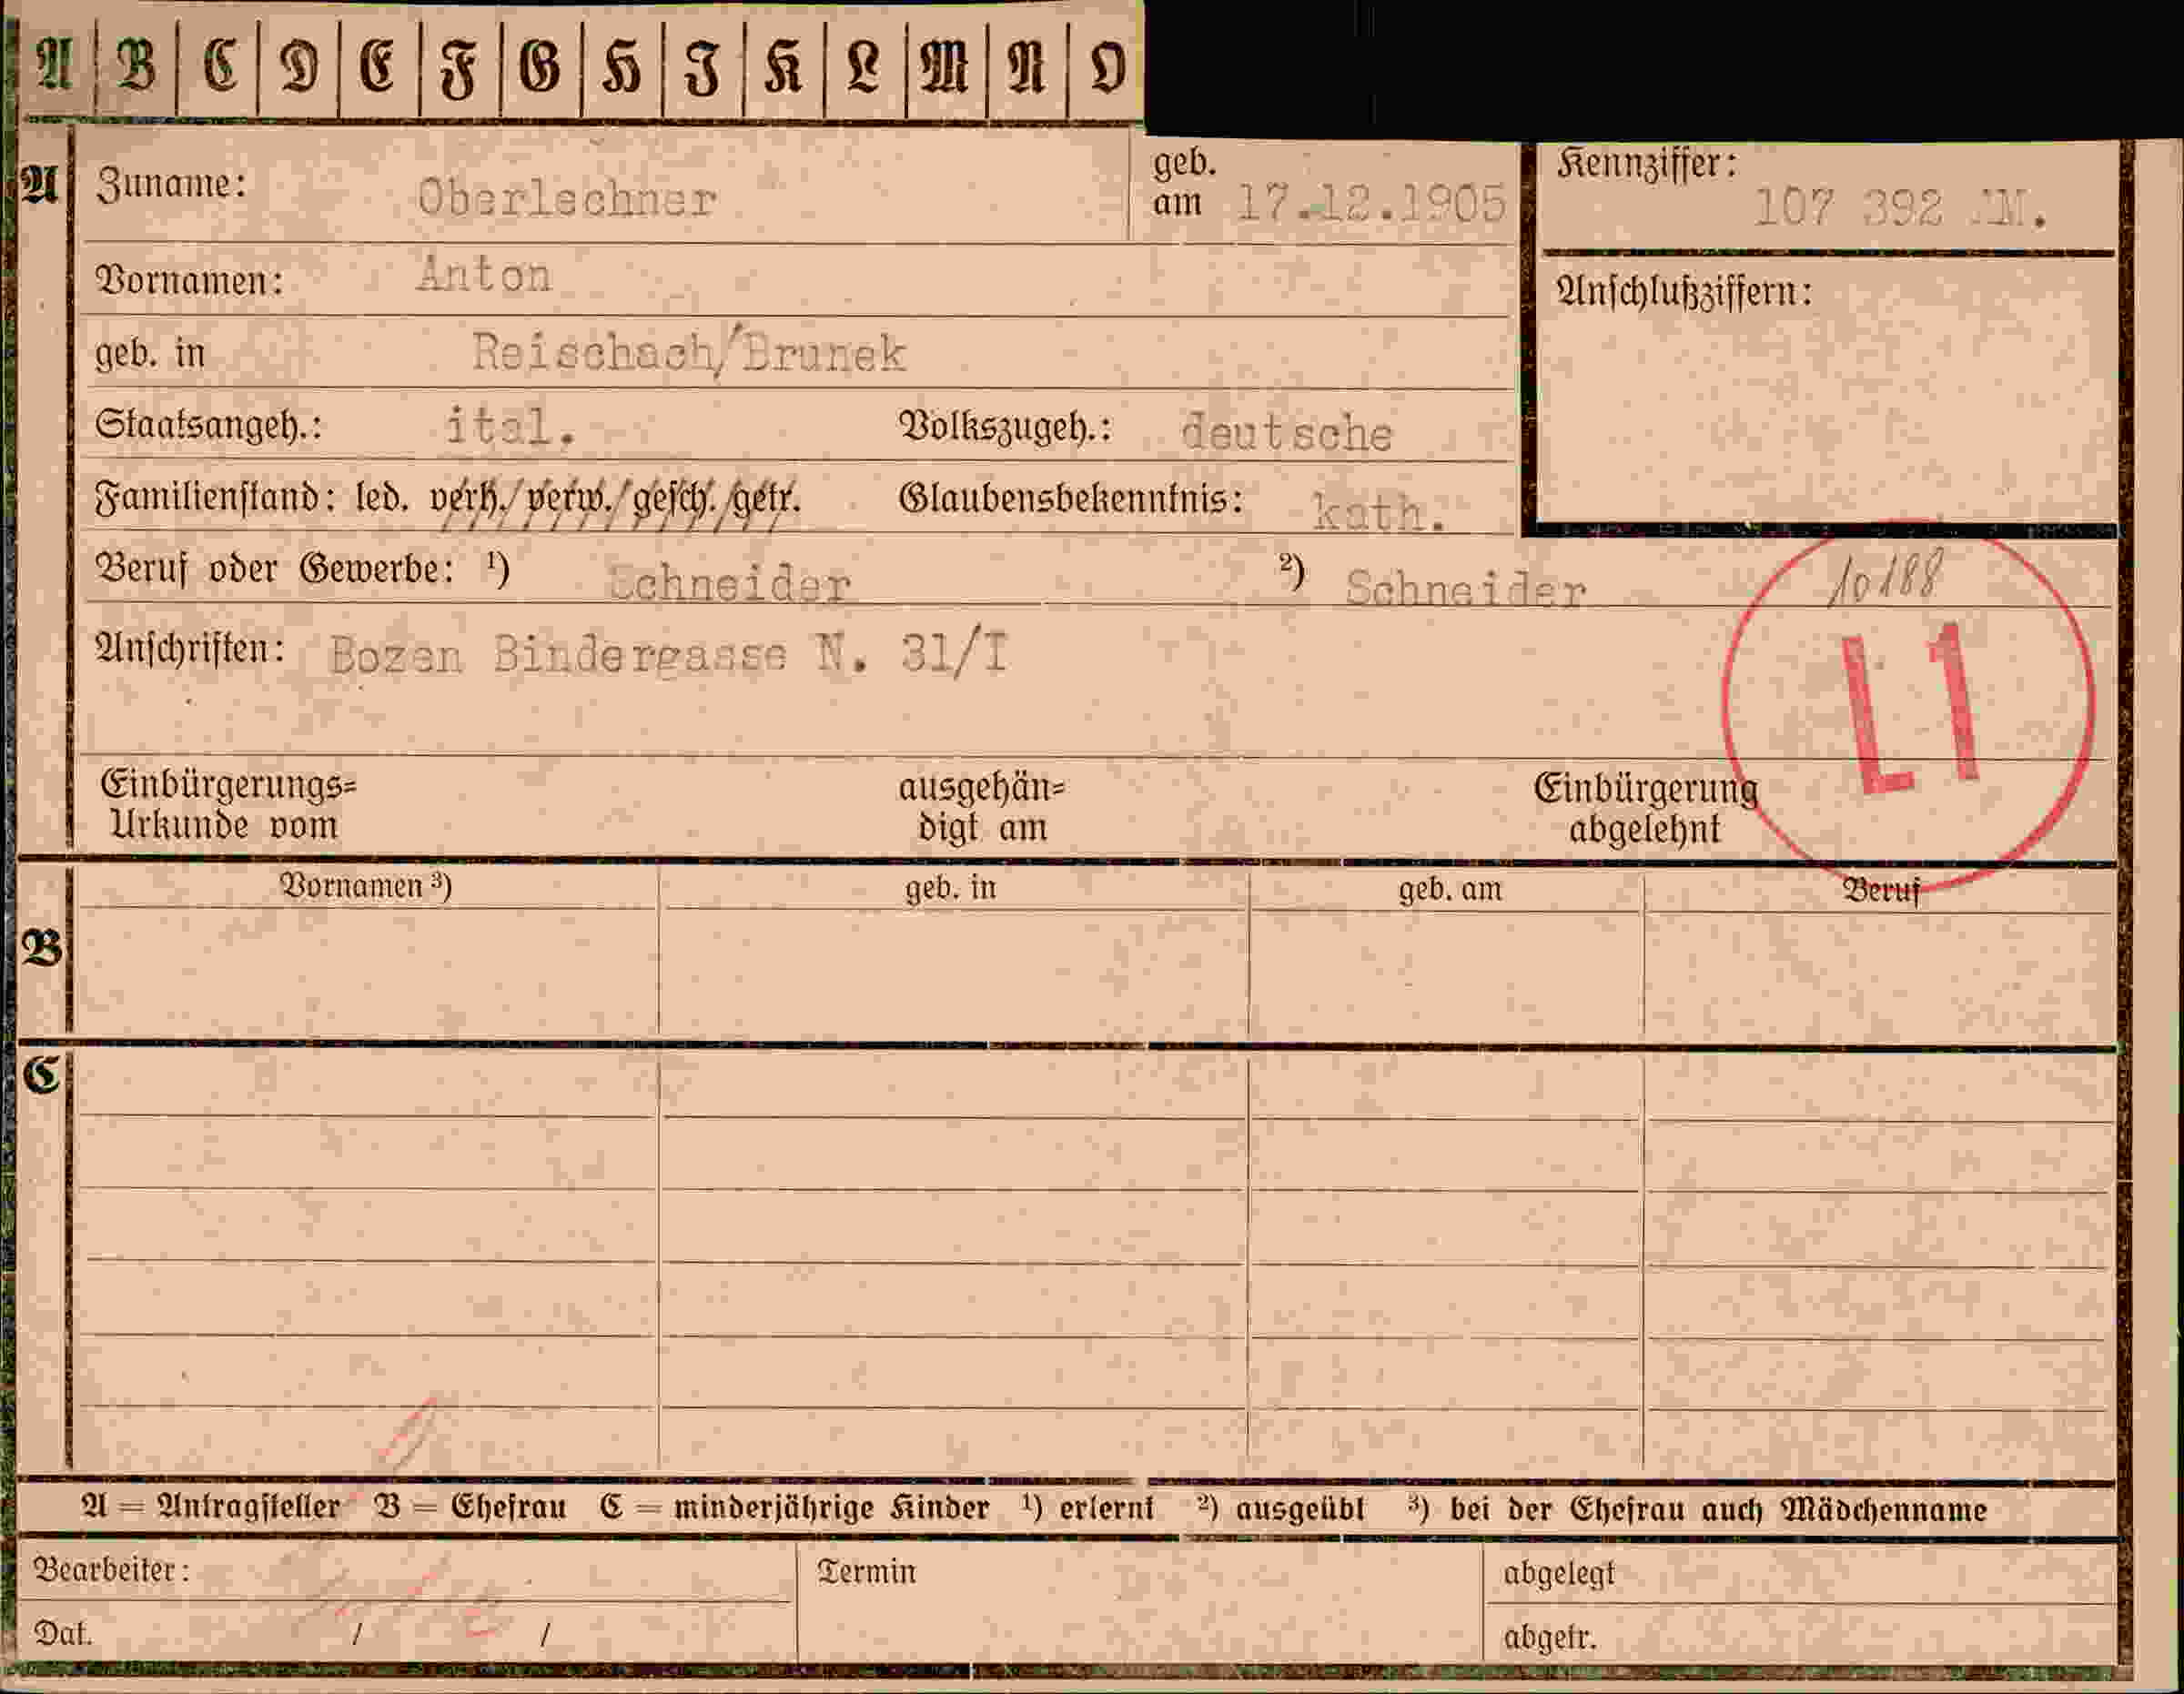 A B C D E F G H I K L M N O
A Zuname: Oberlechner geb. am 17.12.1905 Kennziffer: 107 392
Vornamen: Anton
Anschlußziffern:
geb. in Reischach/Brunek
Staatsangeh.: ital. Volkszugeh.: deutsche
Familienstand: led. verh./verw./gesch./getr. Glaubensbekenntnis: kath.
Beruf oder Gewerbe: ¹) Schneider ²) Schneider
10188
Anschriften: Bozen Bindergasse N. 31/I
L1
Einbürgerungs=
Urkunde vom
ausgehän=
digt am
Einbürgerung
abgelehnt
Vornamen ³) geb. in geb. am Beruf
B
C
A = Antragsteller B = Ehefrau C = minderjährige Kinder ¹) erlernt ²) ausgeübt ³) bei der Ehefrau auch Mädchenname
Bearbeiter: Termin abgelegt
Dat. / / abgetr.